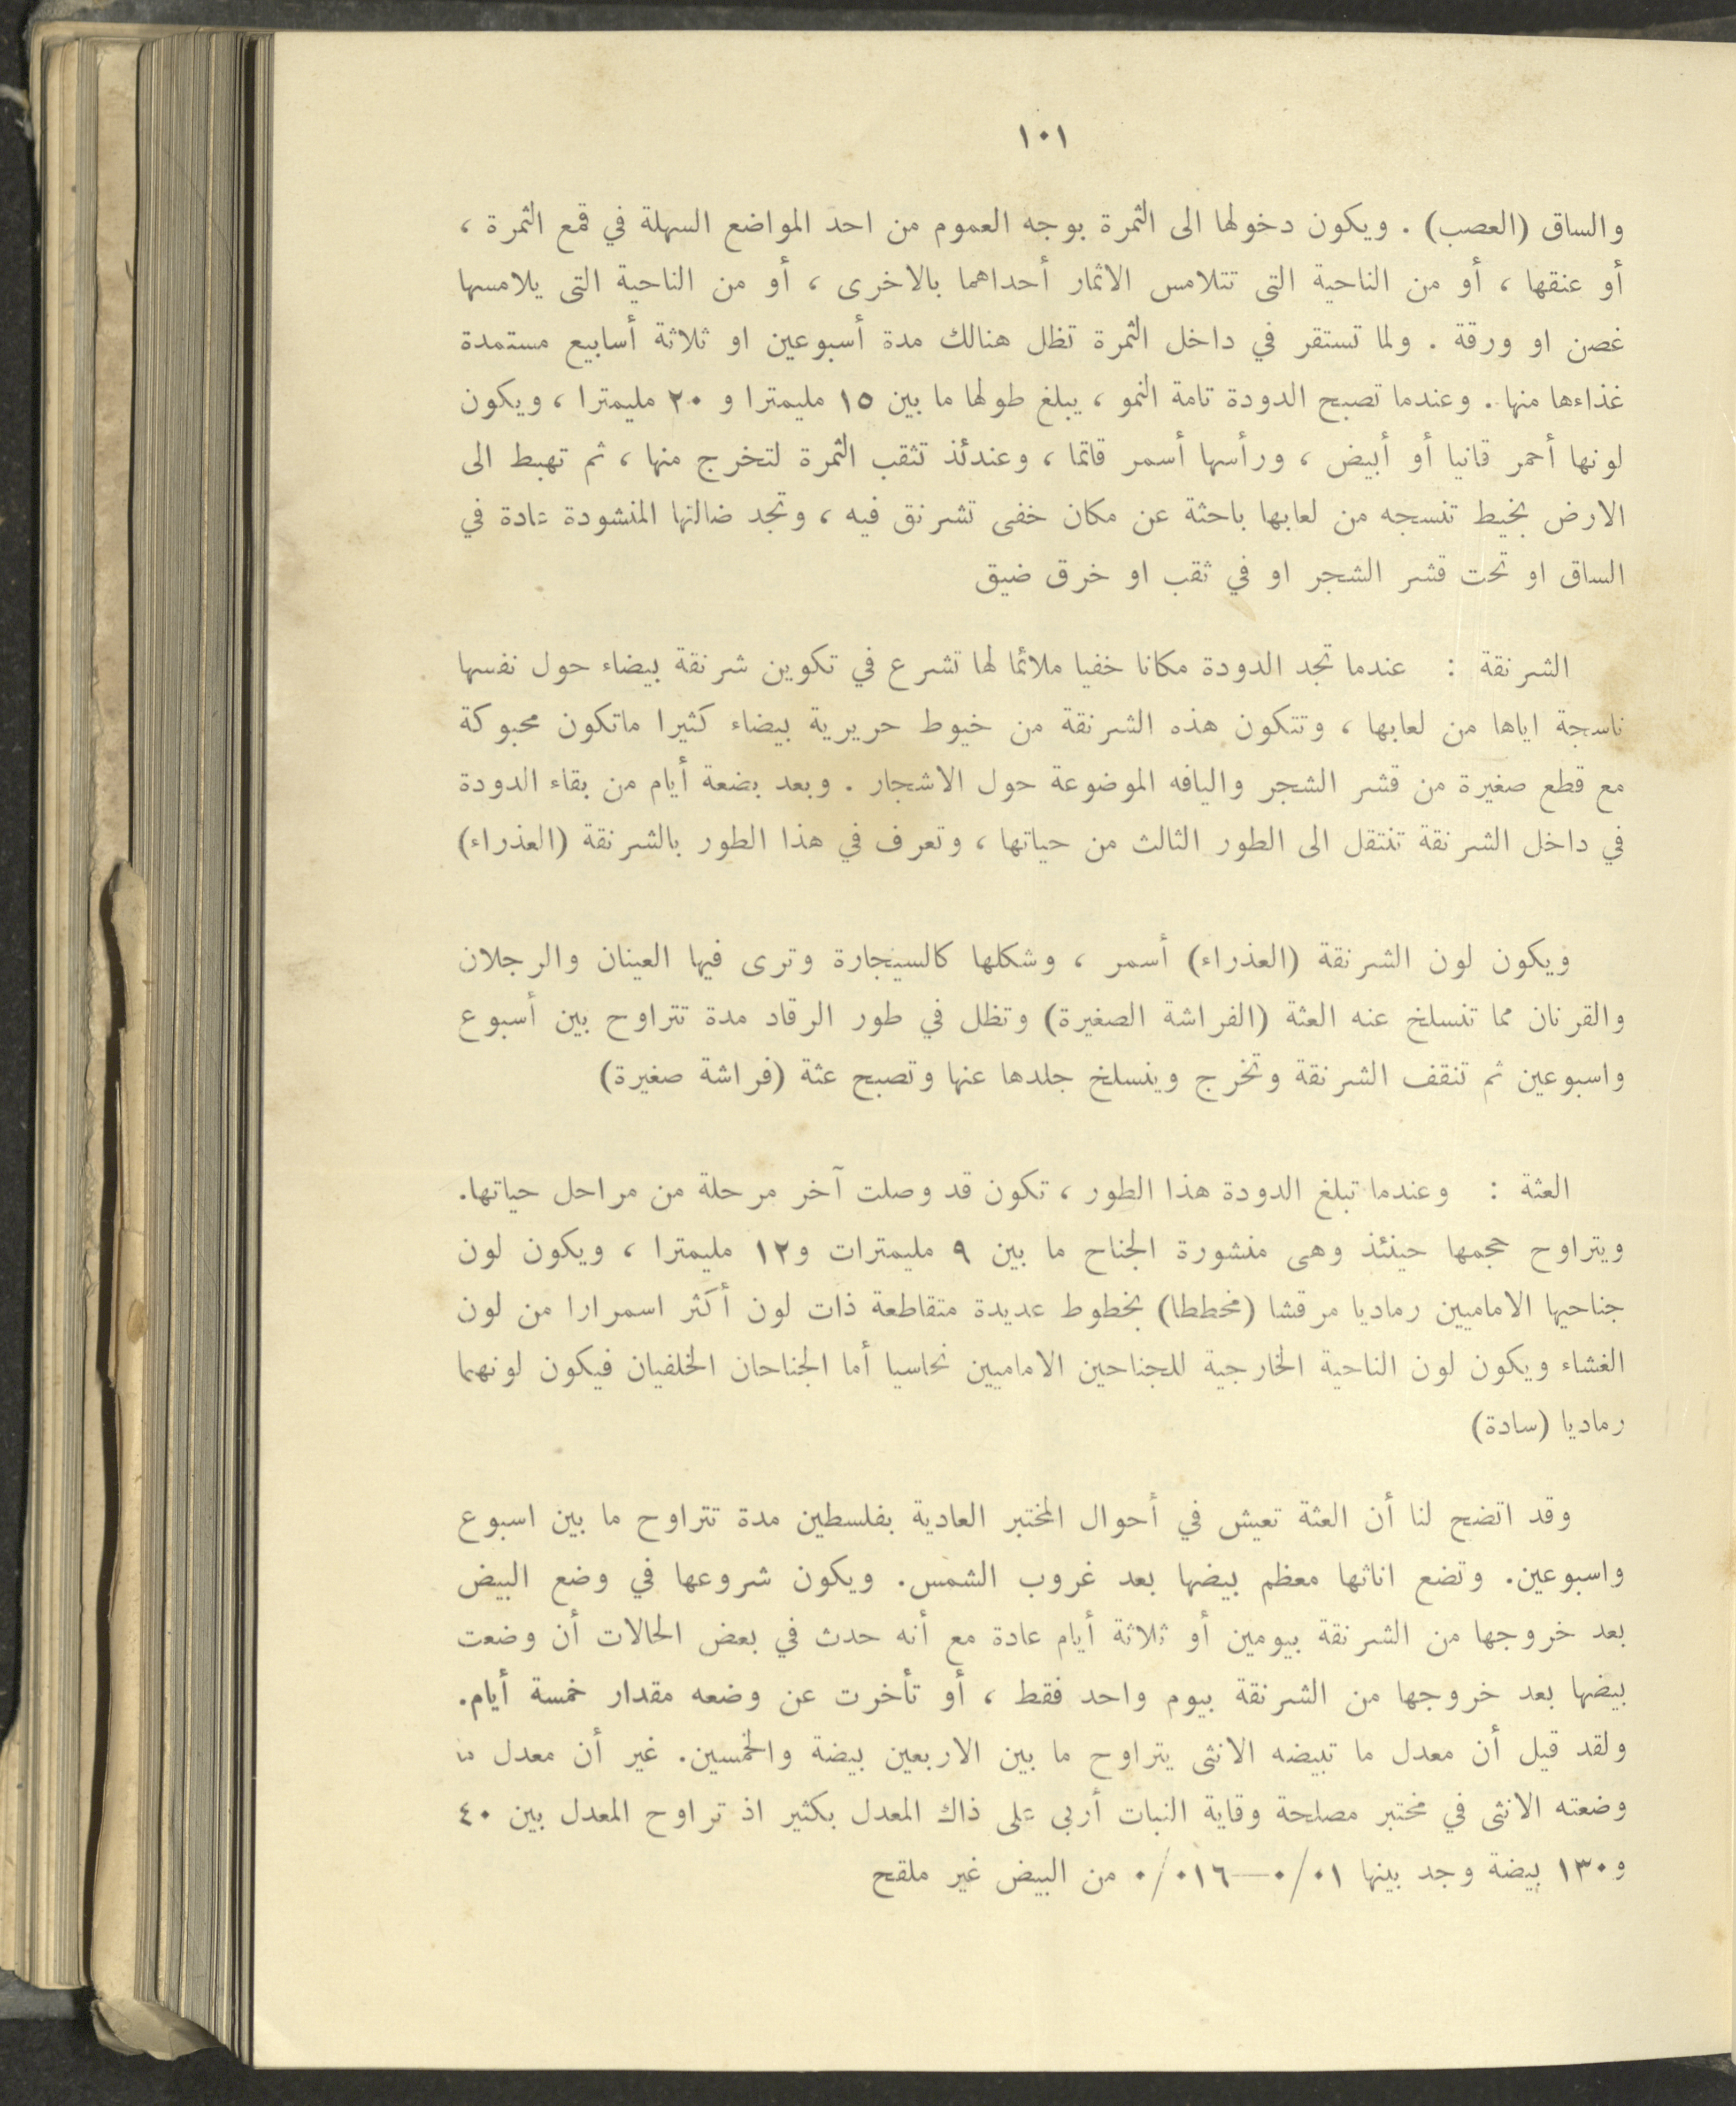 ١٠١
والساق (العصب) . ويكون دخولها الى الثمرة بوجه العموم من احد المواضع السهلة في قمع الثمرة ،
أو عنقها ، أو من الناحية التى تتلامس الاثمار أحداهما بالاخرى ، أو من الناحية التى يلامسها
غصن او ورقة . ولما تستقر في داخل الثمرة تظل هنالك مدة أسبوعين او ثلاثة أسابيع مستمدة
غذاءها منها . وعندما تصبح الدودة تامة النمو ، يبلغ طولها ما بين ١٥ مليمترا و ٢٠ مليمترا ، ويكون
لونها أحمر قانيا أو أبيض ، ورأسها أسمر قاتما ، وعندئذ تثقب الثمرة لتخرج منها ، ثم تهبط الى
الارض بخيط تنسجه من لعابها باحثة عن مكان خفى تشرنق فيه ، وتجد ضالتها المنشودة عادة في
الساق او تحت قشر الشجر او في ثقب او خرق ضيق
الشرنقة : عندما تجد الدودة مكانا خفيا ملائما لها تشرع في تكوين شرنقة بيضاء حول نفسها
ناسجة اياها من لعابها ، وتتكون هذه الشرنقة من خيوط حريرية بيضاء كثيرا ماتكون محبوكة
مع قطع صغيرة من قشر الشجر واليافه الموضوعة حول الاشجار . وبعد بضعة أيام من بقاء الدودة
في داخل الشرنقة تنتقل الى الطور الثالث من حياتها ، وتعرف في هذا الطور بالشرنقة (العذراء)
ويكون لون الشرنقة (العذراء) أسمر ، وشكلها كالسيجارة وترى فيها العينان والرجلان
والقرنان مما تنسلخ عنه العثة (الفراشة الصغيرة) وتظل في طور الرقاد مدة تتراوح بين أسبوع
واسبوعين ثم تنقف الشرنقة وتخرج وينسلخ جلدها عنها وتصبح عثة (فراشة صغيرة)
العثة : وعندما تبلغ الدودة هذا الطور ، تكون قد وصلت آخر مرحلة من مراحل حياتها.
ويتراوح حجمها حينئذ وهى منشورة الجناح ما بين ٩ مليمترات و١٢ مليمترا ، ويكون لون
جناحيها الاماميين رماديا مرقشا (مخططا) بخطوط عديدة متقاطعة ذات لون أكثر اسمرارا من لون
الغشاء ويكون لون الناحية الخارجية للجناحين الاماميين نحاسيا أما الجناحان الخلفيان فيكون لونهما
رماديا (سادة)
وقد اتضح لنا أن العثة تعيش في أحوال المختبر العادية بفلسطين مدة تتراوح ما بين اسبوع
واسبوعين. وتضع اناثها معظم بيضها بعد غروب الشمس. ويكون شروعها في وضع البيض
بعد خروجها من الشرنقة بيومين أو ثلاثة أيام عادة مع أنه حدث في بعض الحالات أن وضعت
بيضها بعد خروجها من الشرنقة بيوم واحد فقط ، أو تأخرت عن وضعه مقدار خمسة أيام.
ولقد قيل أن معدل ما تبيضه الانثى يتراوح ما بين الاربعين بيضة والخمسين. غير أن معدل ما
وضعته الانثى في مختبر مصلحة وقاية النبات أربى على ذاك المعدل بكثير اذ تراوح المعدل بين ٤٠
و١٣٠ بيضة وجد بينها ٠/٠١—٠/٠١٦ من البيض غير ملقح